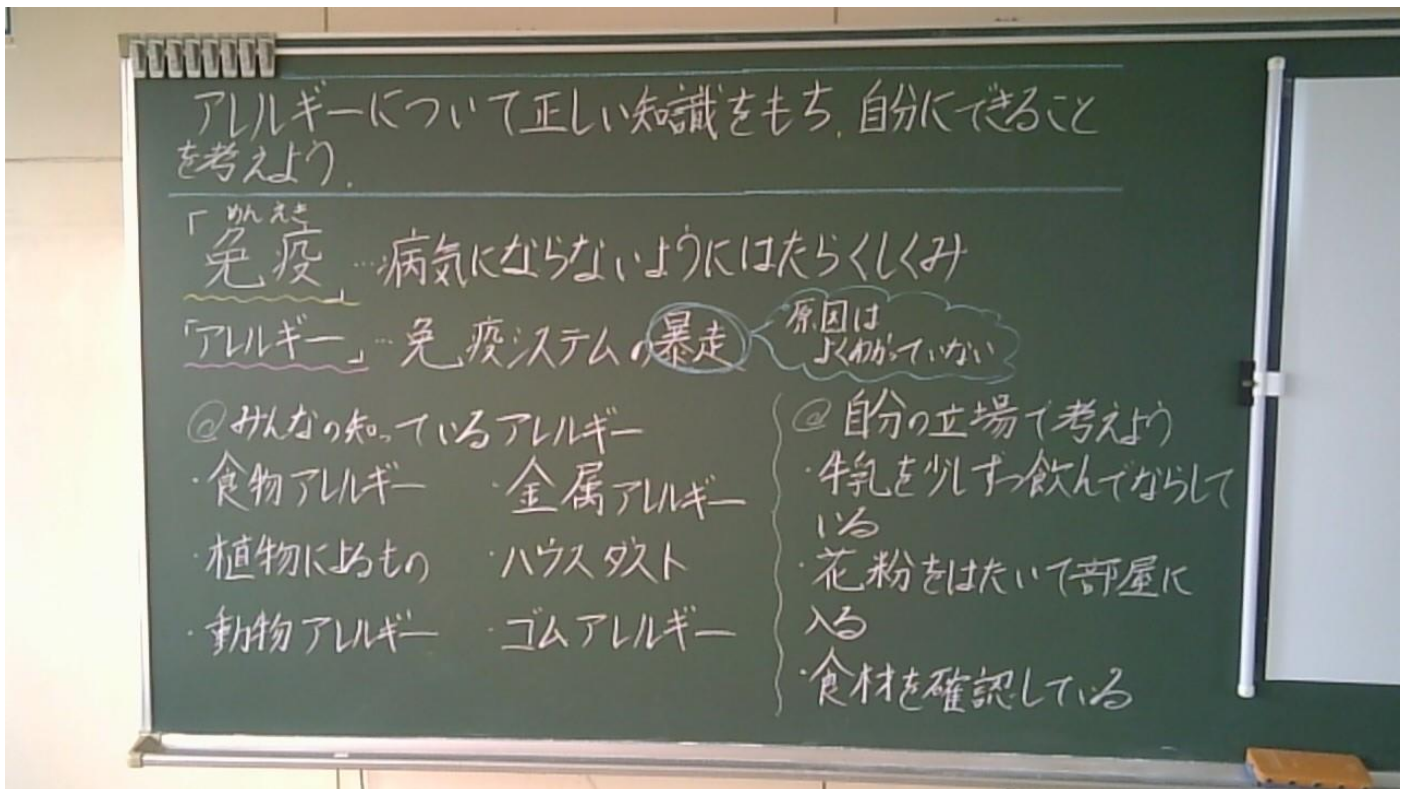 アレルギーについて正しい知識をもち、自分にできること
を考えよう。
めんえき
「免疫」…病気にならないようにはたらくしくみ
「アレルギー」…免疫システムの暴走
原因は
よくわかっていない
@みんなの知っているアレルギー
・食物アレルギー
・金属アレルギー
・植物によるもの
・ハウスダスト
・動物アレルギー
・ゴムアレルギー
@自分の立場で考えよう
・牛乳を少しずつ飲んでならして
いる
・花粉をはたいて部屋に
入る
・食材を確認している